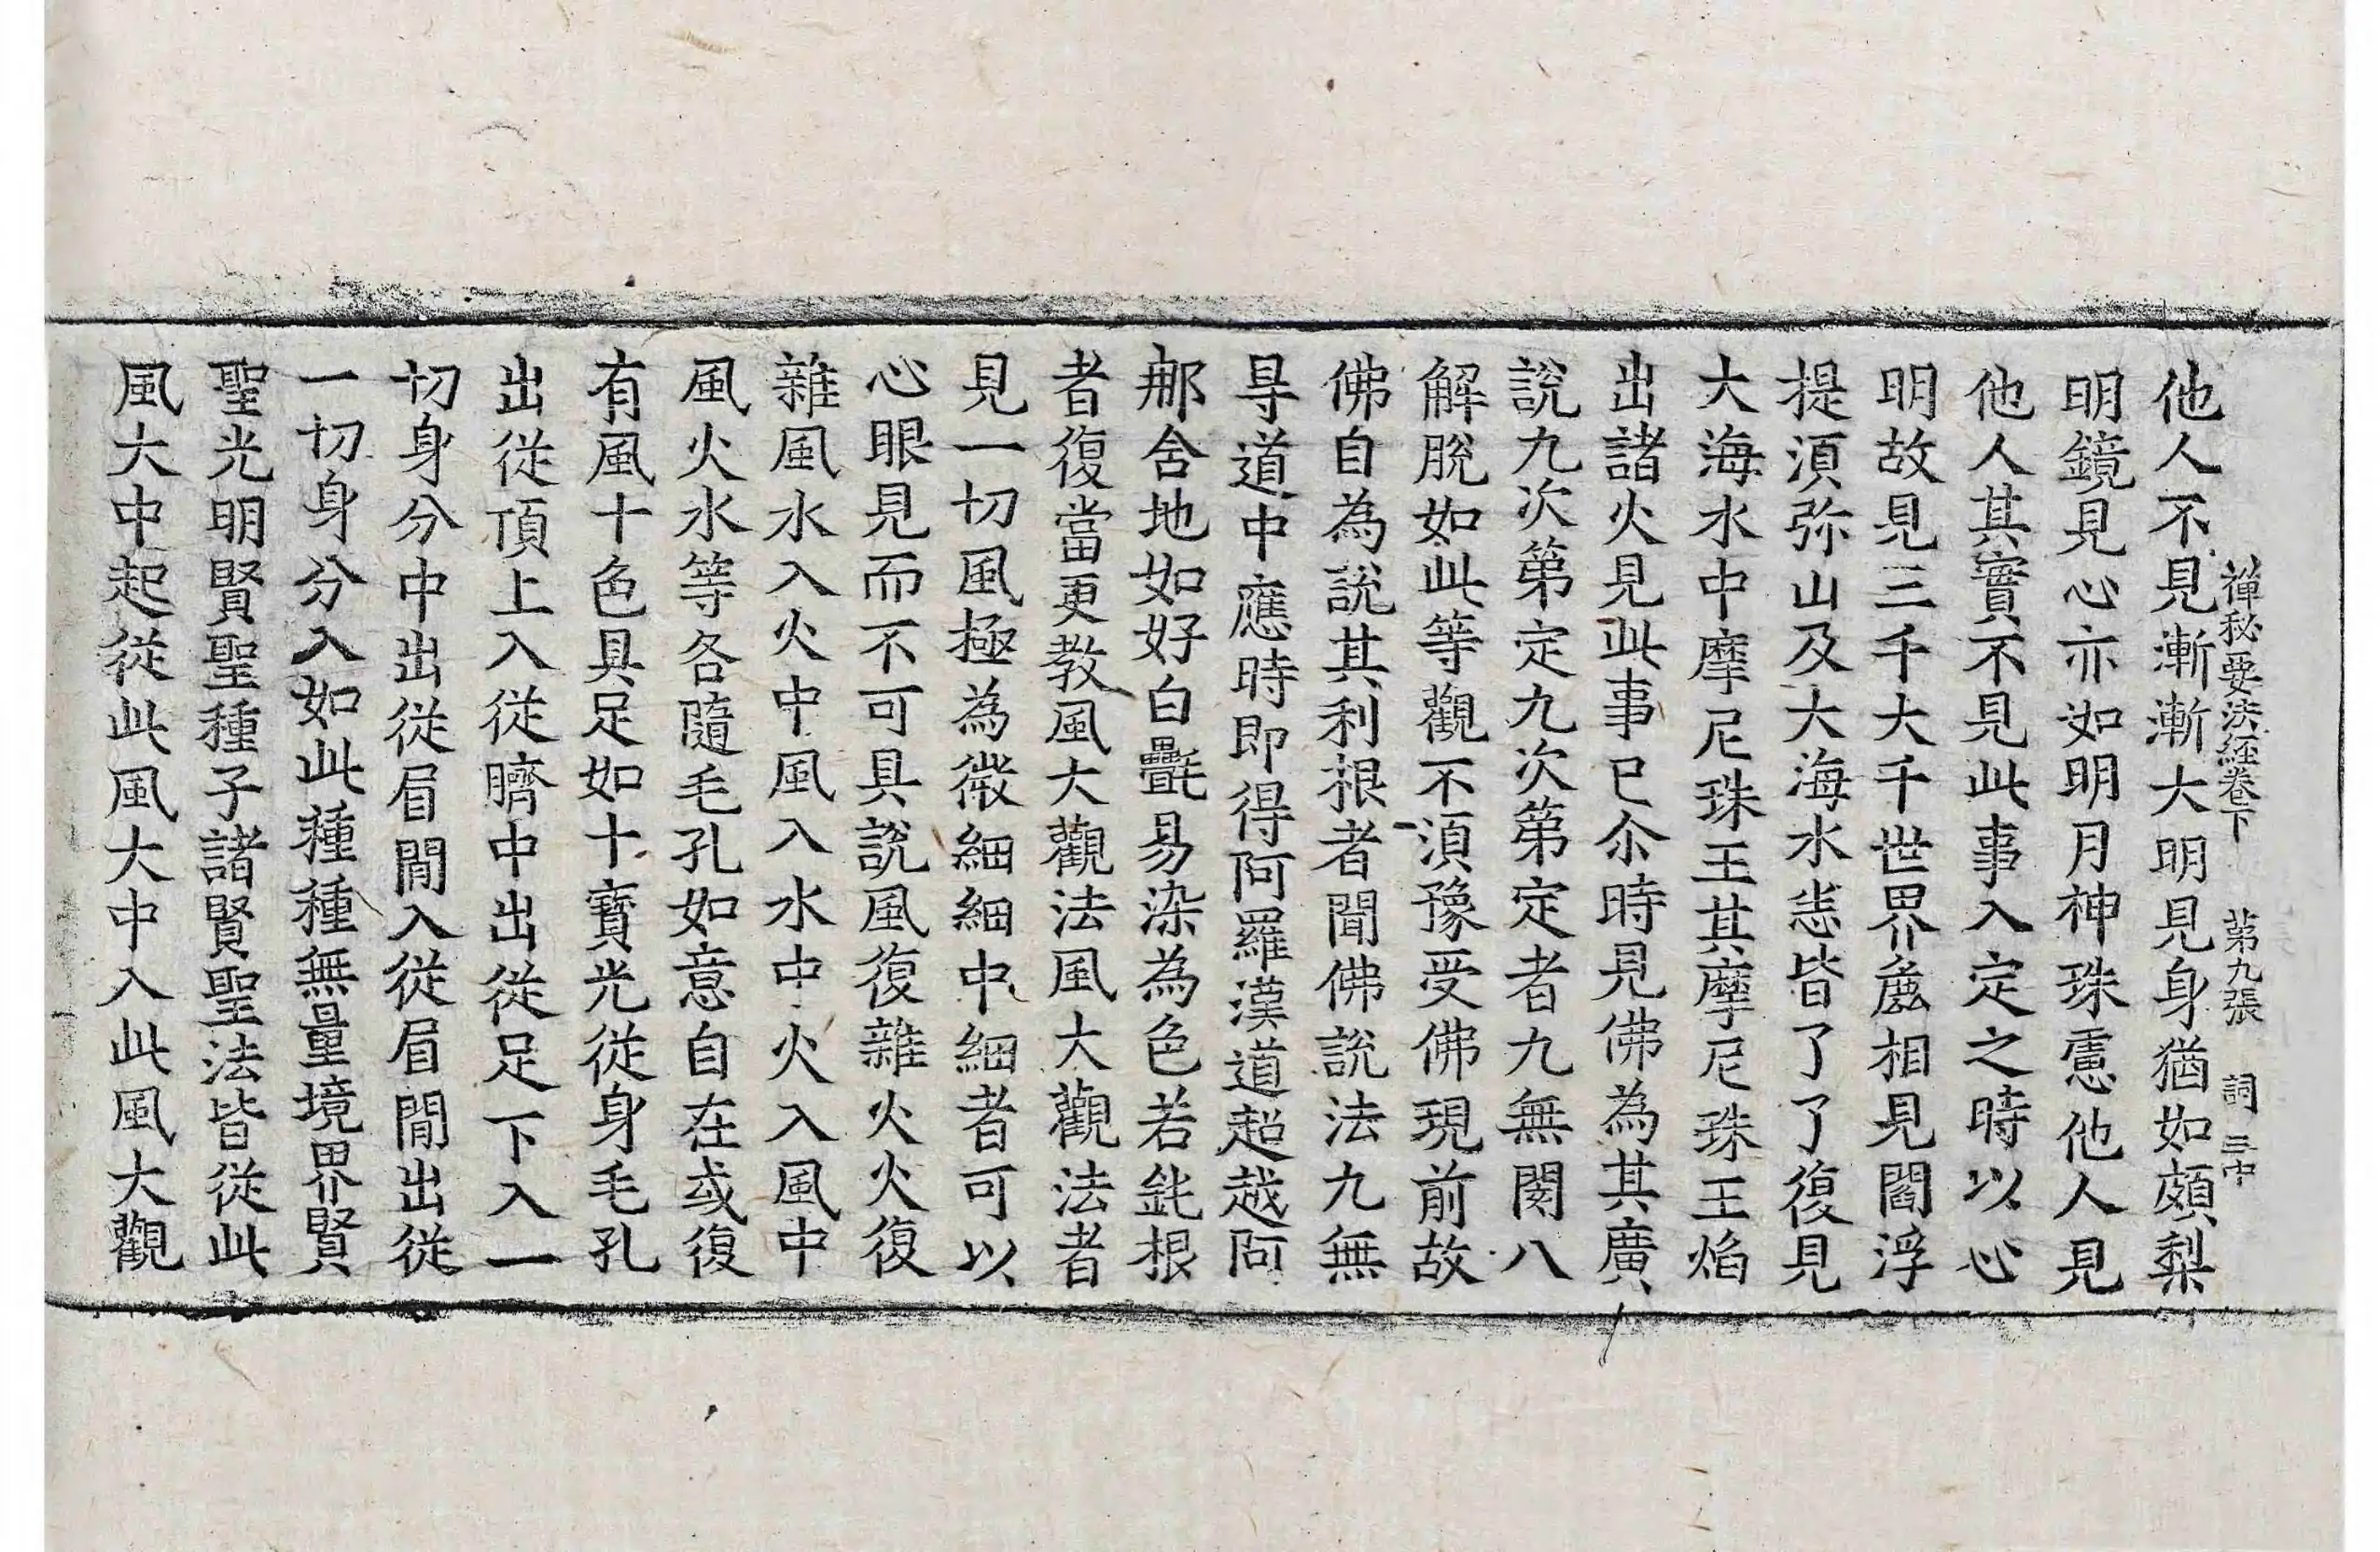 禪秘要法經卷下　第九張　詞　三中
他人不見漸漸大明見身猶如頗梨
明鏡見心亦如明月神珠慮他人見
他人其實不見此事入定之時以心
明故見三千大千世界麁相見閻浮
提湏弥山及大海水悉皆了了復見
大海水中摩尼珠王其摩尼珠王焰
出諸火見此事已尒時見佛為其廣
說九次第定九次第定者九無閡八
解脫如此等觀不湏豫受佛現前故
佛自為說其利根者聞佛說法九無
㝵道中應時即得阿羅漢道超越阿
那含地如好白㲲易染為色若鈍根
者復當更教風大觀法風大觀法者
見一切風極為微細細中細者可以
心眼見而不可具說風復雜火火復
雜風水入火中風入水中火入風中
風火水等各隨毛孔如意自在或復
有風十色具足如十寶光從身毛孔
出從頂上入從臍中出從足下入一
切身分中出從眉間入從眉間出從
一切身分入如此種種無量境界賢
聖光明賢聖種子諸賢聖法皆從此
風大中起從此風大中入此風大觀